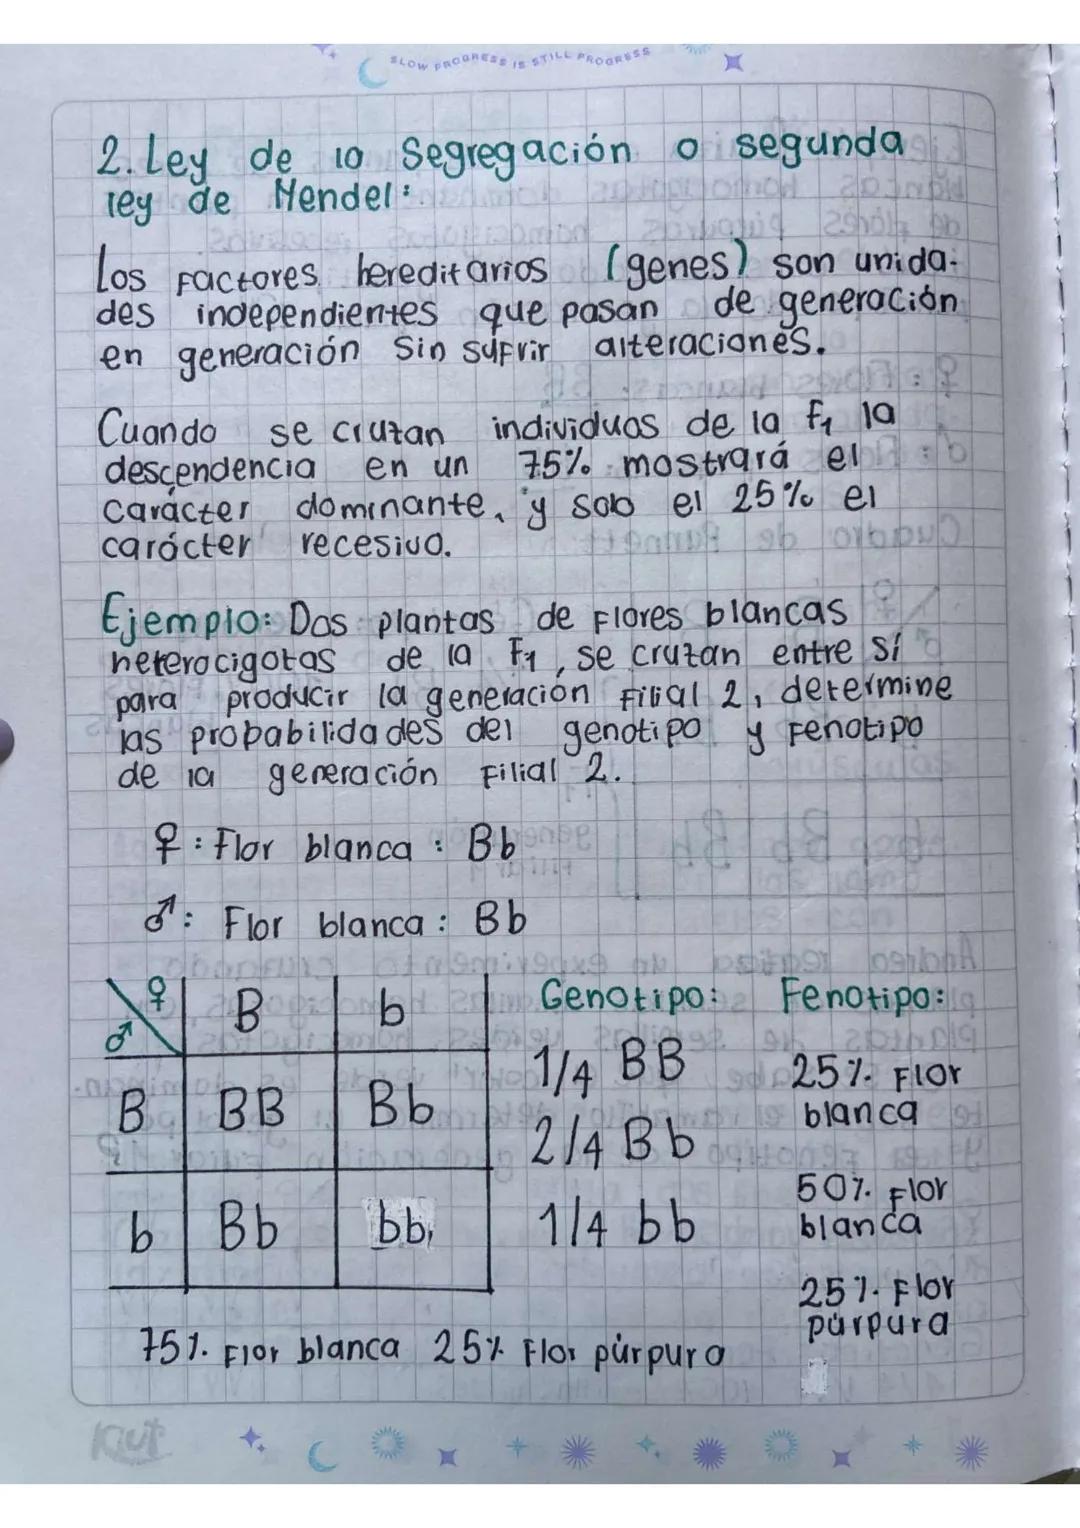 SLOW PROGRESS IS STILL PROGRESS
2. Ley de la Segregación o segunda
ley de Mendel:
Los factores hereditarios (genes) son unida-
des independientes que pasan de generación
en generación sin sufrir alteraciones.
Cuando se cruzan individuos de la F1 la
descendencia en un 75% mostrará el
carácter dominante, y solo el 25% el
carácter recesivo.
Ejemplo: Dos plantas de flores blancas
heterocigotas de la F1, se cruzan entre sí
para producir la generación filial 2, determine
las probabilidades del genotipo y fenotipo
de la generación filial 2.
♀: Flor blanca: Bb
♂: Flor blanca: Bb
♀ B b
♂
B BB Bb
b Bb bb
Genotipo:
1/4 BB
2/4 Bb
1/4 bb
Fenotipo:
25% Flor
blanca
50% Flor
blanca
25% Flor
púrpura
75% Flor blanca 25% Flor púrpura